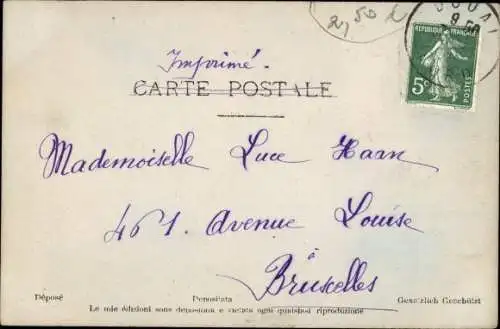 DOUAI
9
REPUBLIQUE FRANÇAISE
5c
POSTES
Imprimé.
CARTE POSTALE
Mademoiselle Luce Haan
461. Avenue Louise
à
Bruxelles
Déposé Depositata Gesetzlich Geschützt
Le mie edizioni sono depositate e vietata ogni qualsiasi riproduzione